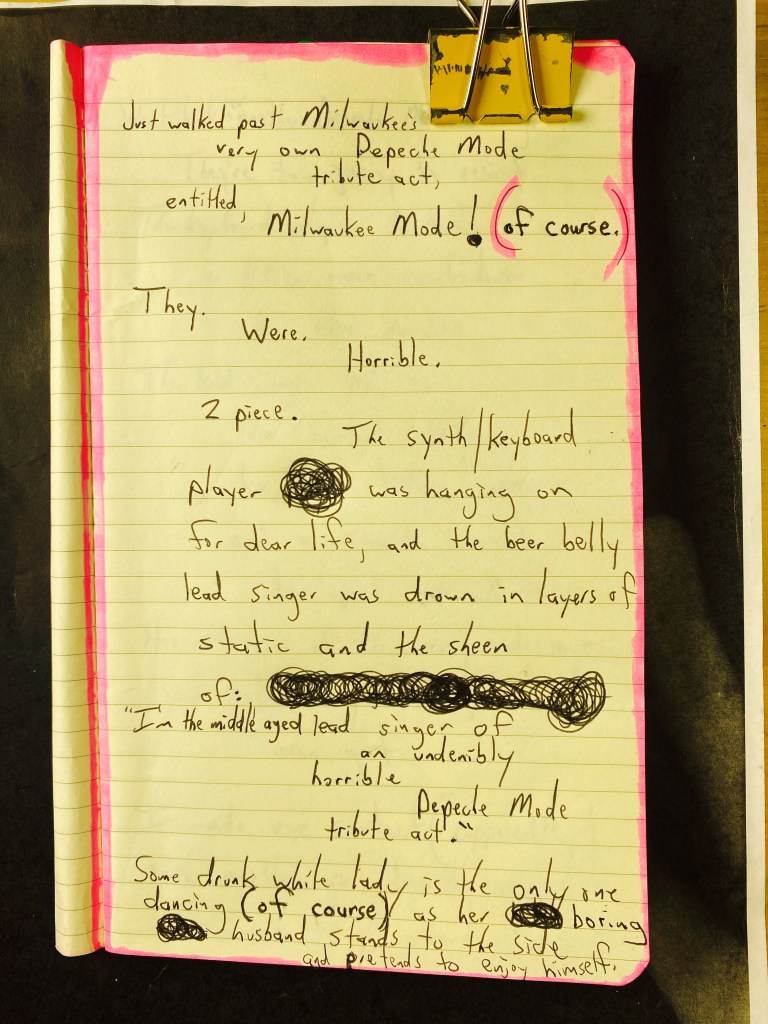 Just walked past Milwaukee's
very own Depeche Mode
tribute act,
entitled,
Milwaukee Mode! (of course.)
They.
Were.
Horrible.
2 piece.
The synth/keyboard
player was hanging on
for dear life, and the beer belly
lead singer was drown in layers of
static and the sheen
of:
"I'm the middle aged lead singer of
an undenibly
horrible
Depeche Mode
tribute act."
Some drunk white lady is the only one
dancing (of course) as her boring
husband stands to the side
and pretends to enjoy himself.